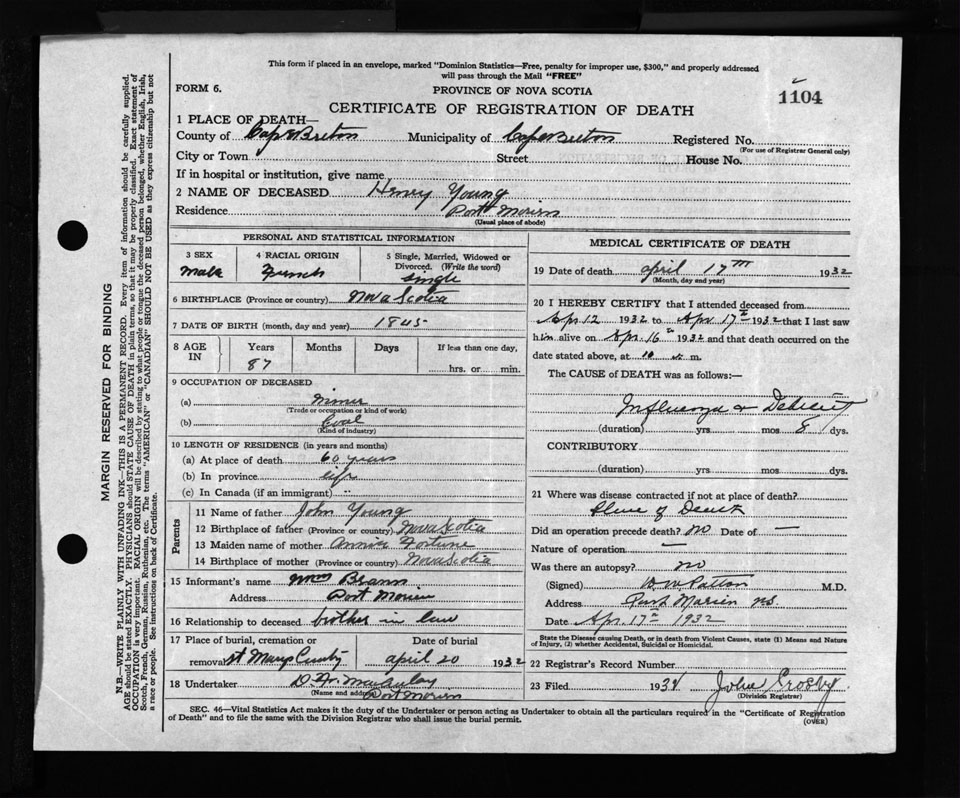 This form if placed in an envelope, marked "Dominion Statistics—Free, penalty for improper use, $300," and properly addressed
will pass through the Mail "FREE"
FORM 6.
PROVINCE OF NOVA SCOTIA
1104
CERTIFICATE OF REGISTRATION OF DEATH
1 PLACE OF DEATH—
County of Cape Breton Municipality of Cape Breton Registered No.
(For use of Registrar General only)
City or Town Street House No.
If in hospital or institution, give name
2 NAME OF DECEASED Henry Young
Residence Port Morien
(Usual place of abode)
PERSONAL AND STATISTICAL INFORMATION
3 SEX 4 RACIAL ORIGIN 5 Single, Married, Widowed or
Divorced. (Write the word)
Male French single
6 BIRTHPLACE (Province or country) Nova Scotia
7 DATE OF BIRTH (month, day and year) 1845
8 AGE IN Years Months Days If less than one day,
87 hrs. or min.
9 OCCUPATION OF DECEASED
(a) miner
(Trade or occupation or kind of work)
(b) Coal
(Kind of industry)
10 LENGTH OF RESIDENCE (in years and months)
(a) At place of death 60 years
(b) In province life
(c) In Canada (if an immigrant)
Parents
11 Name of father John Young
12 Birthplace of father (Province or country) Nova Scotia
13 Maiden name of mother Annie Fortune
14 Birthplace of mother (Province or country) Nova Scotia
15 Informant's name Brann
Address Port Morien
16 Relationship to deceased brother in law
17 Place of burial, cremation or Date of burial
removal St Marys april 20 1932
18 Undertaker
(Name and address) Port Morien
MEDICAL CERTIFICATE OF DEATH
19 Date of death april 17th 1932
(Month, day and year)
20 I HEREBY CERTIFY that I attended deceased from
Apr 12 1932 to Apr. 17th 1932 that I last saw
him alive on Apr. 16th 1932 and that death occurred on the
date stated above, at 10 m.
The CAUSE of DEATH was as follows:—
Influenza
(duration) yrs mos 8 dys.
CONTRIBUTORY
(duration) yrs. mos. dys.
21 Where was disease contracted if not at place of death?
Place of Death
Did an operation precede death? no Date of —
Nature of operation —
Was there an autopsy? no
(Signed) Patton M.D.
Address Port Morien NS.
Date Apr. 17th 1932
State the Disease causing Death, or in death from Violent Causes, state (1) Means and Nature
of Injury, (2) whether Accidental, Suicidal or Homicidal.
22 Registrar's Record Number
23 Filed 193 John Crosby
(Division Registrar)
SEC. 46—Vital Statistics Act makes it the duty of the Undertaker or person acting as Undertaker to obtain all the particulars required in the "Certificate of Registration
of Death" and to file the same with the Division Registrar who shall issue the burial permit.
(OVER)
MARGIN RESERVED FOR BINDING
N.B.—WRITE PLAINLY WITH UNFADING INK—THIS IS A PERMANENT RECORD. Every item of information should be carefully supplied.
AGE should be stated EXACTLY. PHYSICIANS should STATE CAUSE OF DEATH in plain terms, so that it may be properly classified. Exact statement of
OCCUPATION is very important. RACIAL ORIGIN will be described by stating to what people or tongue the deceased person belonged, whether English, Irish,
Scotch, French, German, Russian, Ruthenian, etc. The terms "AMERICAN" or "CANADIAN" SHOULD NOT BE USED as they express citizenship but not
a race or people. See instructions on back of Certificate.